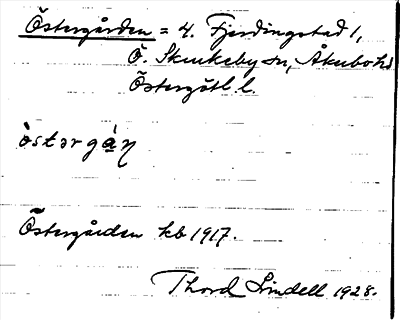 Östergården = 4. Fjerdingstad 1,
Ö. Skrukeby sn, Åkerbo hd
Östergötl. l.
östərgáŋ
Östergården kb 1917.
Thord Lindell 1928.